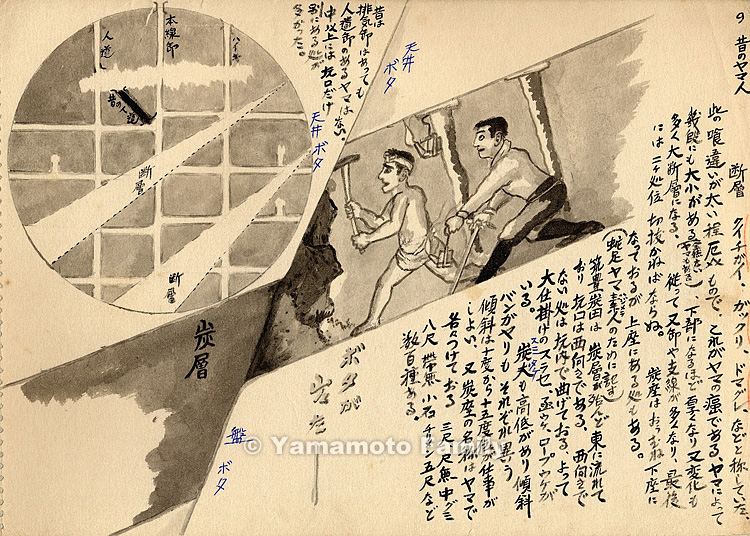 9 昔のヤマ人
断層 タイチガイ、ガックリ、ドマグレ、などと称していた、
此の喰違いが太い程厄介もので、これがヤマの癌である、ヤマによって
幾段にも大小がある
、下部になるほど
り又変化も
多く大断層になる。従って又卸や支線が多くなり、最後
には二ヶ処位切抜かねばならぬ。炭座はおうむね下座に
なっておるが上座にある処もある。
(蛇足ヤマ素人のために記す)
筑豊炭田は、炭層が殆んど東に流れて
おり坑口は西向きである、西向きで
ない処は坑内で曲げておる、よって
大仕掛けの
ロープウケが
いる。炭丈も高低があり傾斜
スミタケ
バンがヤリもそれぞれ異う
傾斜は十度から十五度が仕事が
しよい、又炭座の名称はヤマで
名々つけておる 三尺、尺無 中グミ
八尺 帯無 小石 チイン 五尺など
数百種ある。
天井 ボタ
昔は
排気卸はあっても
人道卸のあるヤマはない、
中以上には坑口だけ
別にある処が
多かった。
天井 ボタ
ハイキ
本線卸
人道
昔の人道
断層
断層
炭層
ボタが
盤 ボタ
© Yamamoto Family